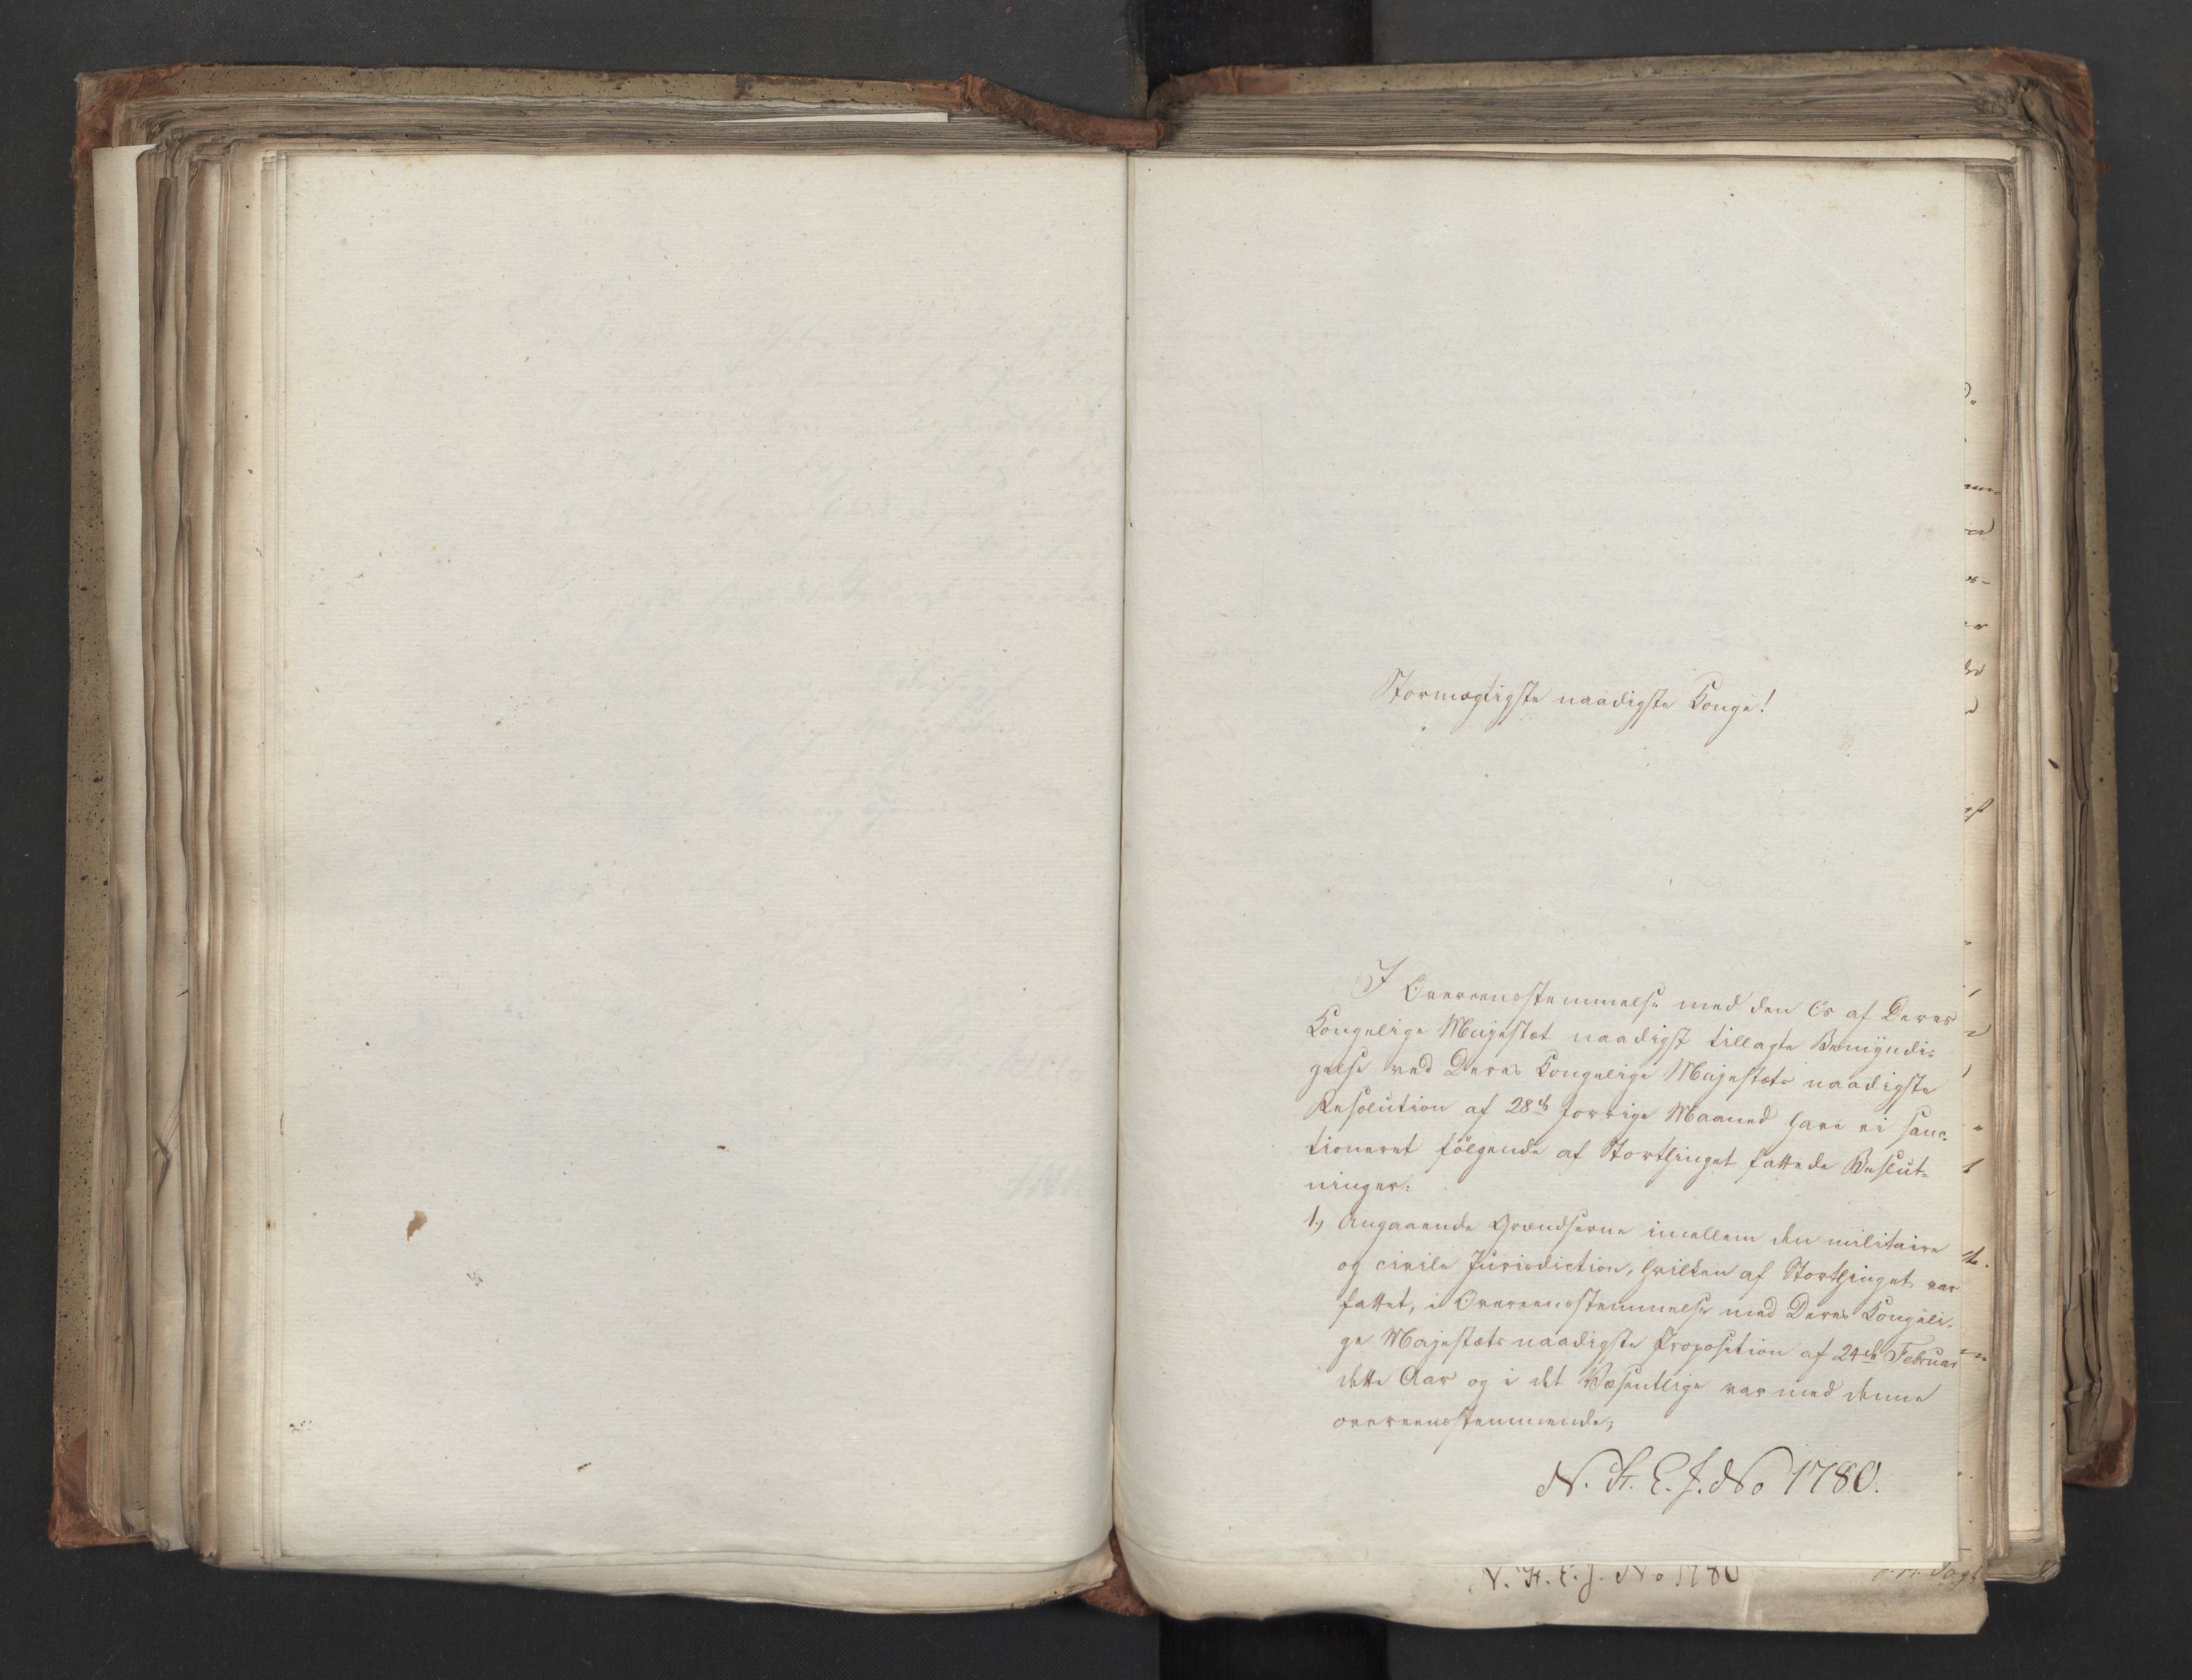 Stormægtigste naadigste Konge!
I Overeensstemmelse med den Os af Deres
Kongelige Majestæt naadigst tillagte Bemÿndi-
gelse ved Deres Kongelige Majestæts naadigste
Resolution af 28de forrige Maaned have vi sanc-
tioneret følgende af Storthinget fattede Beslut-
ninger:
1, Angaaende Grændserne imellem den militaire
og civile Jurisdiction, hvilken af Storthinget var
fattet, i Overeensstemmelse med Deres Kongeli-
ge Majestæts naadigste Proposition af 24de Februar
dette Aar og i det Væsentlige var med denne
overeensstemmende;
N. St. E. J. No 1780.
N. St. E. J. No 1780